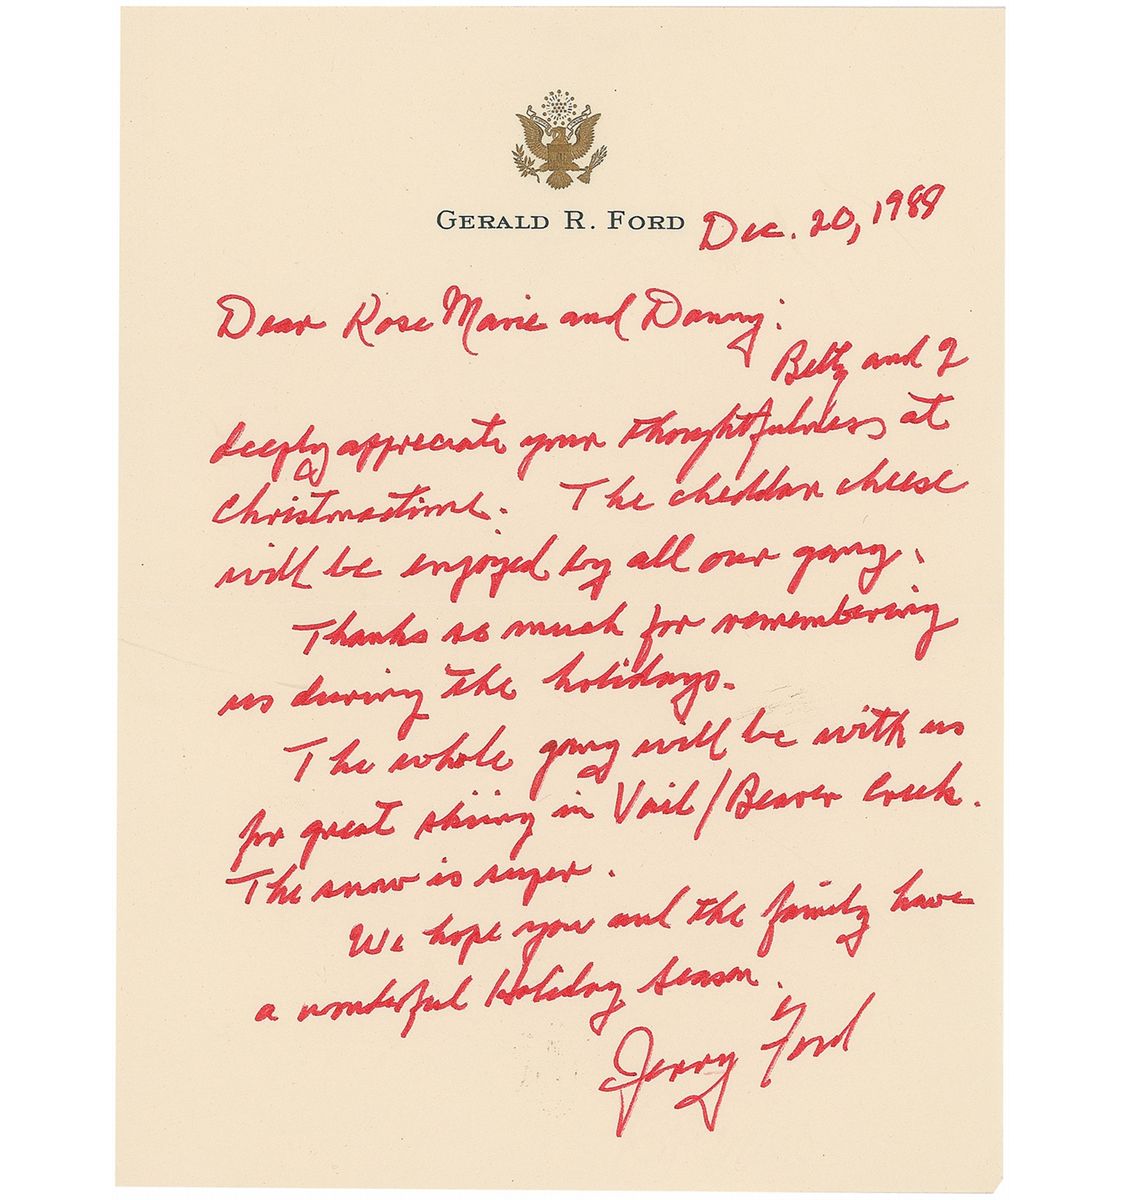 GERALD R. FORD
Dec. 20, 1988
Dear Rose Marie and Danny:
Betty and I
deeply appreciate your thoughtfulness at
Christmastime. The cheddar cheese
will be enjoyed by all our gang.
Thanks so much for remembering
us during the holidays.
The whole gang will be with us
for great skiing in Vail/Beaver Creek.
The snow is super.
We hope you and the family have
a wonderful holiday season.
Jerry Ford